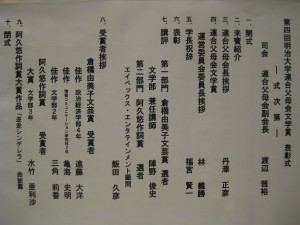 第四回明治大学連合父母会文学賞 表彰式
―式次第―
司会 連合父母会副会長 渡辺 雅裕
一、開式
二、来賓紹介
三、連合父母会長挨拶
連合父母会長 丹澤 正彦
四、運営委員会委員長挨拶
林 義勝
五、学長祝辞
福宮 賢一
六、表彰
七、講評 第一部門 倉橋由美子文芸賞 選者
文学部 兼任講師 陣野 俊史
第二部門 阿久悠作詞賞 選者
エイベックス・エンタテインメント顧問
飯田 久彦
八、受賞者挨拶
倉橋由美子文芸賞 受賞者
佳作 政治経済学部4年 遠藤 大洋
佳作 情報コミュニケーション学部 亀海 史明
阿久悠作詞賞 受賞者
佳作 文学部2年 三角 莉香
大賞 文学部3年 水竹 亜利沙
九、阿久悠作詞賞大賞作品「逆走シンデレラ」曲披露
十、閉式